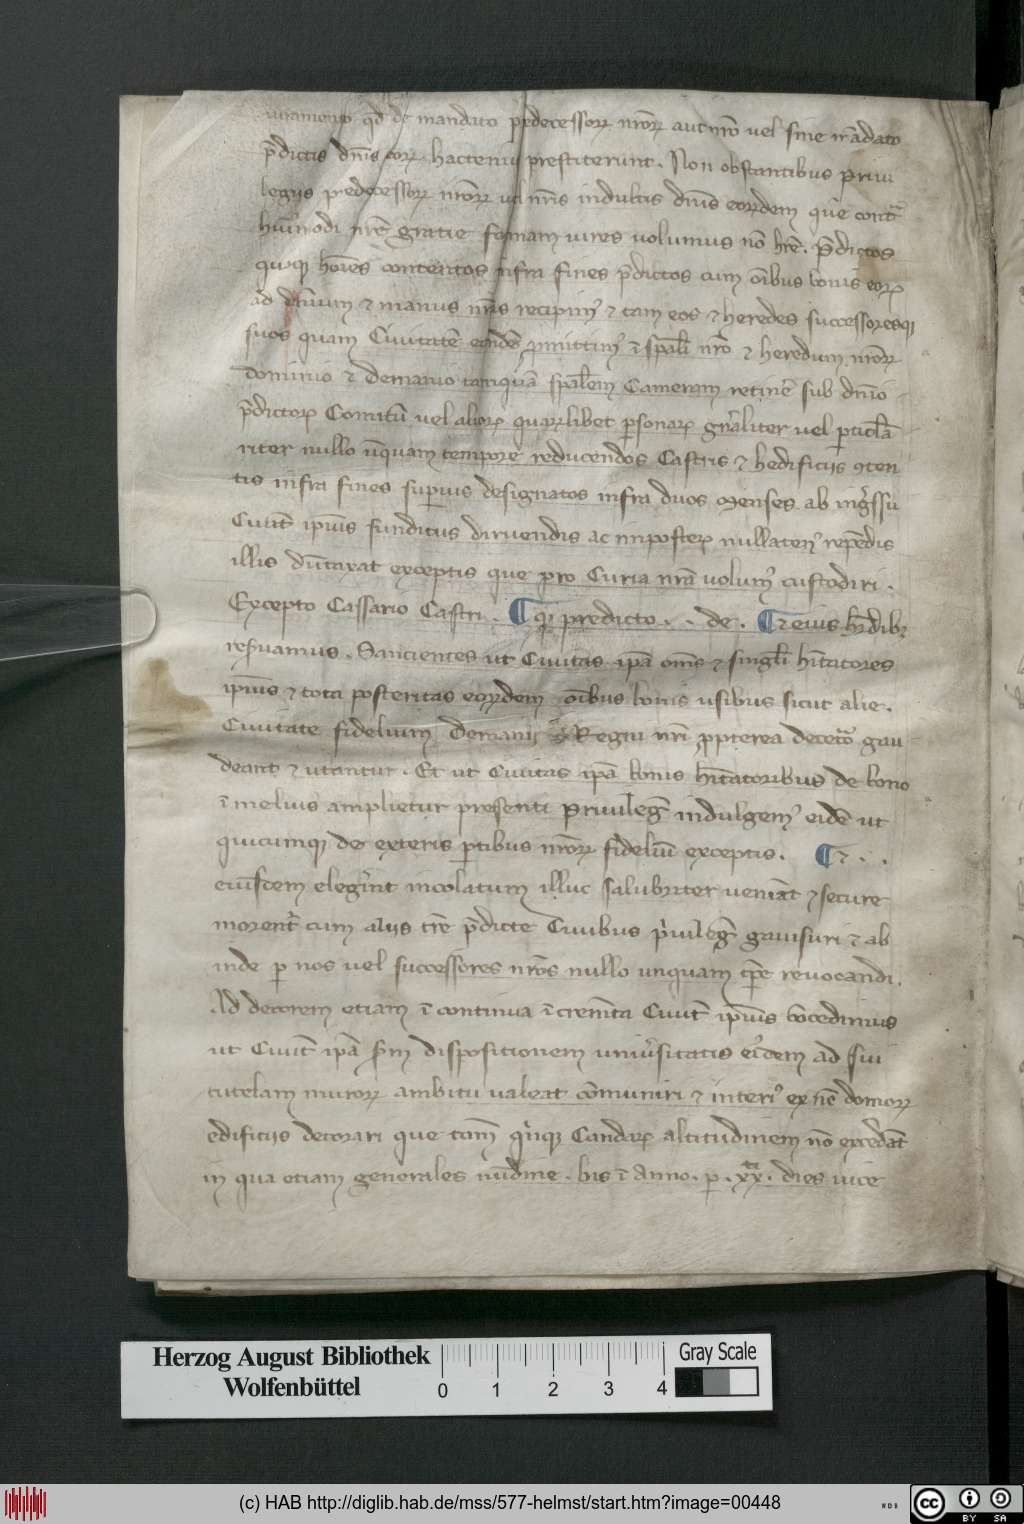 iuramento qd de mandato p̄decessorꝝ nr̄orꝝ aut nr̄o vel sine mādato
p̄dictis dn̄is eorꝝ hactenus prestiterunt. Non obstantibus priui
legijs predecessorꝝ nr̄orꝝ vel nr̄is indultis dn̄is eorꝝdem que contᵃ
huiꝰmodi nr̄e gratie formam vires volumus nō hr̄e. P̄dictos
quoqꝫ hoīes contentos infra fines p̄dictos cum oībus bonis eorꝝ
ad dn̄ium ⁊ manus nr̄as recipimꝰ ⁊ tam eos ⁊ heredes successoresqꝫ
suos quam Ciuitatē eandē ꝓmittimꝰ ī spāli nr̄o ⁊ heredum nr̄orꝝ
dominio ⁊ demanio tamquā spālem Cameram retinē sub dn̄io
p̄dictorꝝ Comitū vel aliorꝝ quarꝝlibet ꝑsonarꝝ gn̄raliter vel ꝑticlā
riter nullo vnquam tempore reducendos Castris ⁊ hedificijs ꝯten
tis infra fines suꝑius designatos infra duos Menses ab ingr̄ssu
Ciuit̄ ipīus funditus diruendis ac imposterꝝ nullatenꝰ repēdis
illis dūtaxat exceptis que pro Curia nr̄a volumꝰ custodiri.
Excepto Cassario Castri. ¶ qꝫ predicto. . de. ¶ ⁊ eius hr̄dibꝫ
res̄uamus. Sancientes ut Ciuitas ipā om̄s ⁊ singl̄i hītatores
ipīus ⁊ tota posteritas eorꝝdem oībus bonis vsibus sicut alie.
Ciuitate fidelium demanij Regni nr̄i ꝓpterea decetō gau
deant ⁊ utantur. Et ut Ciuitas ipā bonis hītatoribus de bono
ī melius amplietur presenti Priuileg̅ indulgemꝰ eidē ut
quicumqꝫ de exteris ꝑtibus nr̄orꝝ fideliū exceptis. ¶ ⁊. .
eiusdem elegīnt incolatum illuc salubriter veniāt ⁊ secure
morent̄ cum alijs tr̄e p̄dicte Ciuibus p̄uileg̅ gauisuri ⁊ ab
inde ꝑ nos vel successores nr̄os nullo vnquam tp̄e reuocandi.
Ad decorem etiam ī continua īcrem̄ta Ciuit̄ ipīus ꝯcedimus
ut Ciuit̄ ipā s̄m dispositionem uniūsitatis eiꝰdem ad sui
tutelam murorꝝ ambitu valeat cōmuniri ⁊ interiꝰ domorꝝ
edificijs decorari que tam̄ qu̇nqꝫ Candarꝝ altitudinem nō excedāt
in qua etiam generales nūdine. bis ī Anno. ꝑ. xxᵗⁱ. dies vice
Herzog August Bibliothek
Wolfenbüttel
0 1 2 3 4
Gray Scale
(c) HAB http://diglib.hab.de/mss/577-helmst/start.htm?image=00448
WDB
CC BY SA